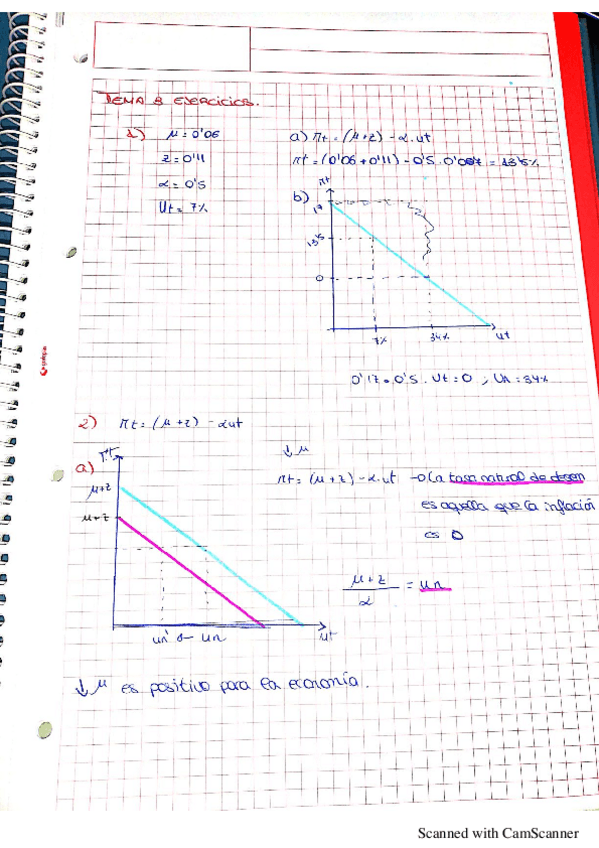 TEMA 8 EJERCICIOS.
1) μ = 0'06
z = 0'11
α = 0'5
Ut = 7%
a) πt = (μ+z) - α.ut
πt = (0'06 + 0'11) - 0'5 . 0'007 = 13'5%
b)
πt
17
13'5
0
7%
34%
ut
0'17 = 0'5 . Ut = 0 ; Un = 34%
2) πt = (μ+z) - αut
a)
πt
μ+z
μ+z
un' ← un
ut
↓μ
πt = (μ+z) - α.ut → La tasa natural de desem
es aquella que la inflación
es 0
μ+z
α
= un
↓ μ es positivo para la economía.
Scanned with CamScanner